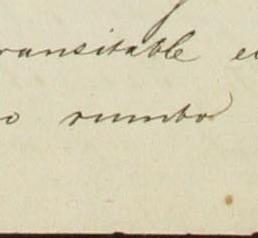 ransitable e
o rumbo